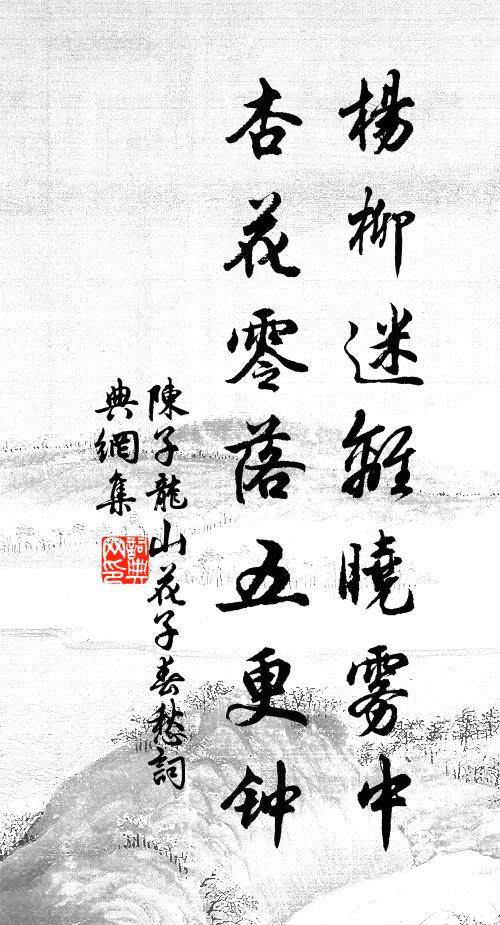 楊柳迷離曉雾中
杏花零落五更钟
陳子龍山花子春愁詞
典網集
詞典网印